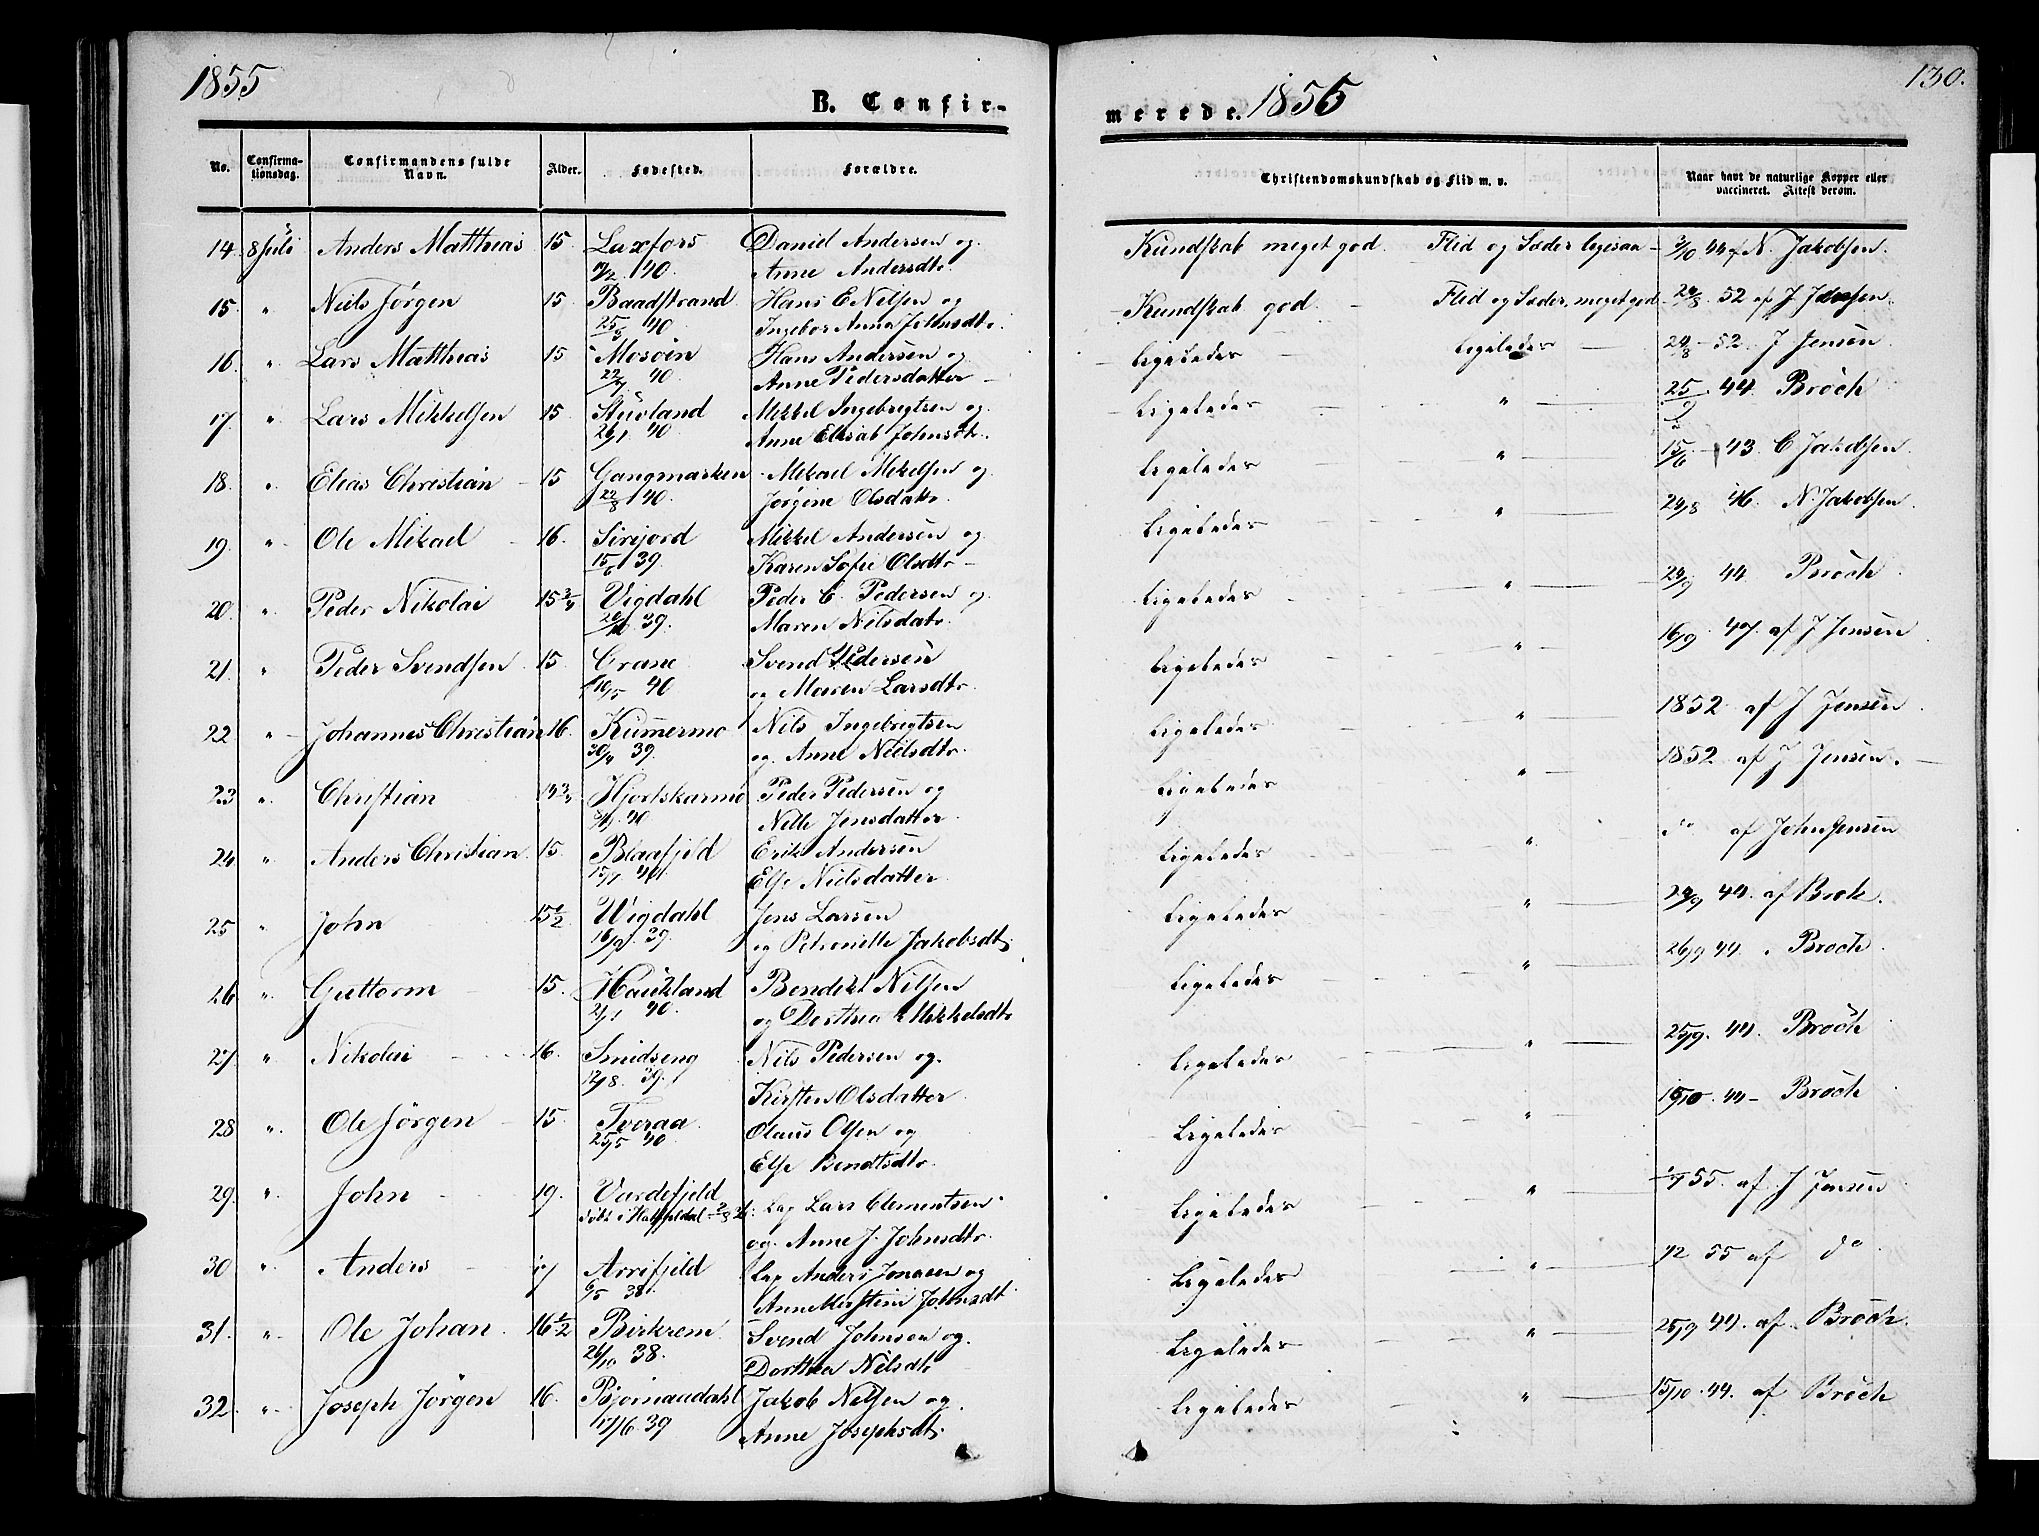 1855
B. Confir-
No.
Confirma-
tionsdag.
Confirmandens fulde
Navn.
Alder.
Fødested.
Forældre.
14. 8 Juli Anders Matthias 15. Laxfors Daniel Andersen og
40. Anne Andersdtr.
15. " Niels Jørgen 15 Baadstrand Hans E Nilsen og
40 Ingebor Anna Johnsdtr.
16. " Lars Matthias 15 Mosøin Hans Andersen og
22/7. 40. Anne Pedersdatter
17 " Lars Mikkelsen 15. Stuvland Mikkel Ingebrigtsen og
26/1 40. Anne Elisab Johnsdtr.
18. " Elias Christian 15 Gangmarken Mikael Mikelsen og
22/8 40. Jørgine Olsdattr.
19. " Ole Mikael 16. Sirijord Mikkel Andersen og
15/6 39. Karen Sofie Olsdtr
20. " Peder Nikolai 15 3/4 Vigdahl Peder C. Pedersen og
39. Maren Nilsdatr.
21. " Peder Svendsen 15. Grane Svend Pedersen
10/5 40 og Maren Larsdtr.
22 " Johannes Christian 16. Kummermo Nils Ingebrigtsen
30/4 39. og Anne Nielsdtr.
23 " Christian 14 3/4 Hjortskarmo Peder Pedersen og
40 Nille Jensdatter
24 " Anders Christian 15. Blaafjeld Erik Andersen
15/1 40. Else Nielsdatter
25 " John 15 1/2 Vigdahl Jens Larsen
16/9. 39. og Petronille Jakobsdtr.
26 " Guttorm 15. Haukland Bendikt Nilsen
2/1 40. og Dorthea Mikkelsdtr
27 " Nikolai 16. Smidseng Nils Pedersen og
12/8. 39. Kirsten Olsdatter
28 " Ole Jørgen 15. Tveraa Olaus Olsen og
25/5 40 Else Bendtsdtr.
29. " John 19. Vardefjeld Lap Lars Clementsen
døbt i Hatfjeldal og. Anne J. Johnsdtr.
30 " Anders 17 Arrefjeld Lap Anders Jonasen og
6/5 38. Anne Johnsdt
31. " Ole Johan 16 1/2 Birkrem Svend Johnson og.
26/10 38. Dorthea Nilsdtr
32. " Joseph Jørgen 16. Bjørnaadahl Jakob Nilsen og.
17/6 39 Anne Josephsdtr.
merede. 1855
130.
Christendomskundskab og Flid m. v.
Naar havt de naturlige Kopper eller
vaccineret. Attest derom.
Kundskab meget god. Flid og Sæder ligesaa 3/10 44 af N. Jakobsen.
Kundskab god Flid og Sæder meget god 24/8. 52 af J Jensen
Ligeledes Ligeledes 24/8 - 52. J Jensen
Ligeledes " 25/9 44. Broch
Ligeledes " 15/6 43. C Jakobsen.
Ligeledes " 24/8 46. N. Jakobsen
Ligeledes " 24/9 44 Broch
Ligeledes " 16/9. 47. af J Jensen
Ligeledes " 1852 af J Jensen
Ligeledes " 1852 af J Jensen.
Ligeledes " do af John Jensen
Ligeledes " 24/9 44. af Brok.
Ligeledes " 26/9 44. Broch
Ligeledes " 25/9. 44. Broch
Ligeledes " 15/10. 44 - Broch
Ligeledes " 55. af J Jensen
Ligeledes " 55 af do
Ligeledes " 25/9 44. af Broch
Ligeledes " 15/10. 44. af Broch